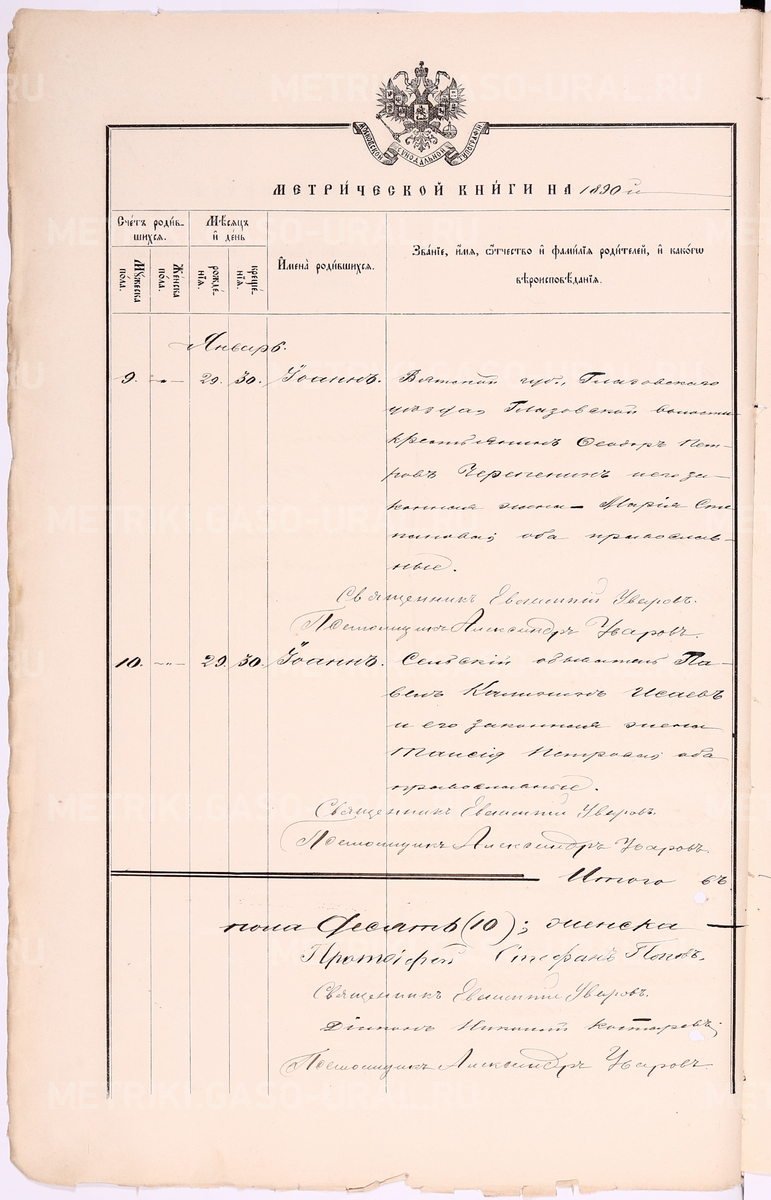 МОСКОВСКОЙ СѴНОДАЛЬНОЙ ТИПОГРАФІИ
МЕТРИ́ЧЕСКОЙ КНИ́ГИ НА 1890 й
Сче́тъ роди́в-
шихся.
Му́жеска по́ла.
Же́нска по́ла.
Мѣ́сяцъ и҆ день
рожде́-
нїя.
креще́-
нїя.
И҆мена̀ роди́вшихся.
Зва́нїе, и҆́мя, ѻ҆́тчество и҆ фами́лїя роди́телей, и҆ како́гѡ
вѣроисповѣ́данїя.
Январь.
9. -„- 29. 30. Іоаннъ. Вятской губ., Глазовскаго
уѣзда, Глазовской волости
крестьянинъ Ѳеодоръ Пет-
ровъ и его за-
конная жена – Марія Сте
панова; оба православ-
ные.
Священникъ Евгеній Уваровъ.
Псаломщикъ Александръ Уваровъ.
10. -„- 29. 30. Іоаннъ. Сельскій обыватель Па-
велъ Исаевъ
и его законная жена
Таисія Петрова; оба
православные.
Священникъ Евгеній Уваровъ.
Псаломщикъ Александръ Уваровъ.
Итого
пола десять (10); женска –
Протоіерей Стефанъ Поповъ.
Священникъ Евгеній Уваровъ.
Діаконъ Николай
Псаломщикъ Александръ Уваровъ.
METRIKI.GASO-URAL.RU